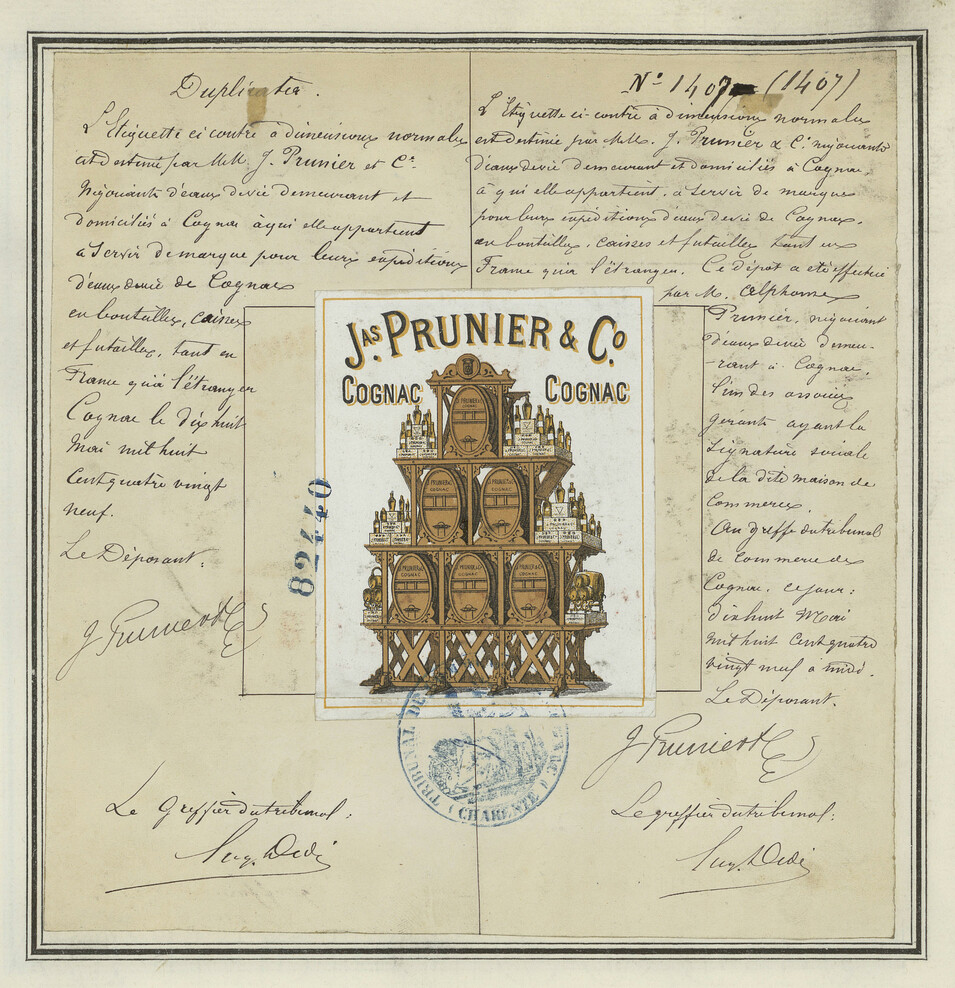 Duplicata.
L'Etiquette ci contre à dimensions normales
est destinée par MM. J. Prunier et Cie
Négociants d'eaux de vie demeurant et
domiciliés à Cognac à qui elle appartient
à Servir de marque pour leurs expéditions
d'eaux de vie de Cognac
en bouteilles, caisses
et futailles, tant en
France qu'à l'étranger
Cognac le dix huit
Mai mil huit
Cent quatre vingt
neuf.
Le Déposant:
J Prunier & Co
Le Greffier du tribunal:
No 1407 (1407)
L'Etiquette ci-contre à dimensions normales
est destinée par MM. J. Prunier & Cie négociants
d'eaux de vie demeurant et domiciliés à Cognac
à qui elle appartient, à servir de marque
pour leurs expéditions d'eaux de vie de Cognac,
en bouteilles, caisses et futailles tant en
France qu'à l'étranger. Ce dépôt a été effectué
par M. Alphonse
Prunier, négociant
d'eaux de vie demeu-
-rant à Cognac,
l'un des associés
gérants ayant la
signature sociale
de la dite maison de
Commerce.
Au greffe du tribunal
de commerce de
Cognac, ce jour:
dix huit Mai
mil huit cent quatre
vingt neuf à midi.
Le Déposant.
J Prunier & Co
Le greffier du tribunal:
JAS. PRUNIER & CO.
COGNAC COGNAC
J. PRUNIER & Co
COGNAC
J. PRUNIER & Co
COGNAC
J. PRUNIER & Co
COGNAC
J. PRUNIER & Co
COGNAC
J. PRUNIER & Co
COGNAC
J. PRUNIER & Co
COGNAC
82440
TRIBUNAL DE
(CHARENTE)